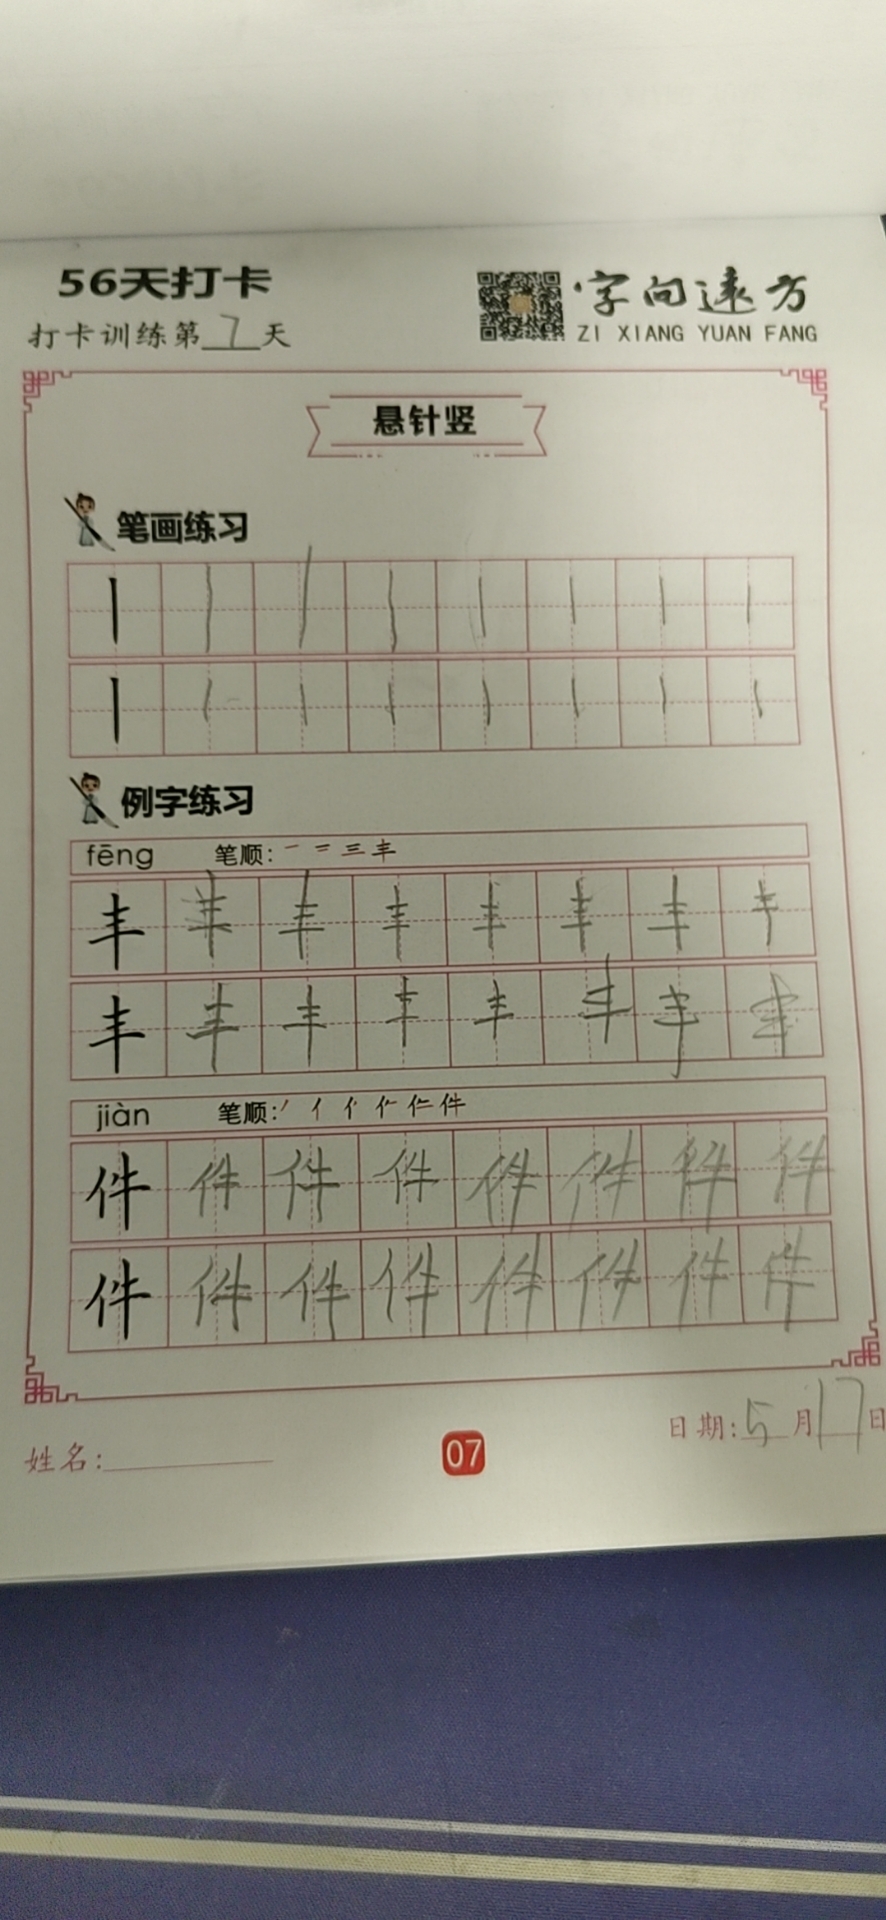 56天打卡
字向远方
打卡训练第7天
ZI XIANG YUAN FANG
悬针竖
笔画练习
丨 丨 丨 丨 丨 丨 丨 丨
丨 丨 丨 丨 丨 丨 丨 丨
例字练习
fēng 笔顺: 一 二 三 丰
丰 丰 丰 丰 丰 丰 丰 丰
丰 丰 丰 丰 丰 丰 丰
jiàn 笔顺: 丿 亻 亻 仁 件
件 件 件 件 件 件 件 件
件 件 件 件 件 件 件 件
姓名:
07
日期:5月17日